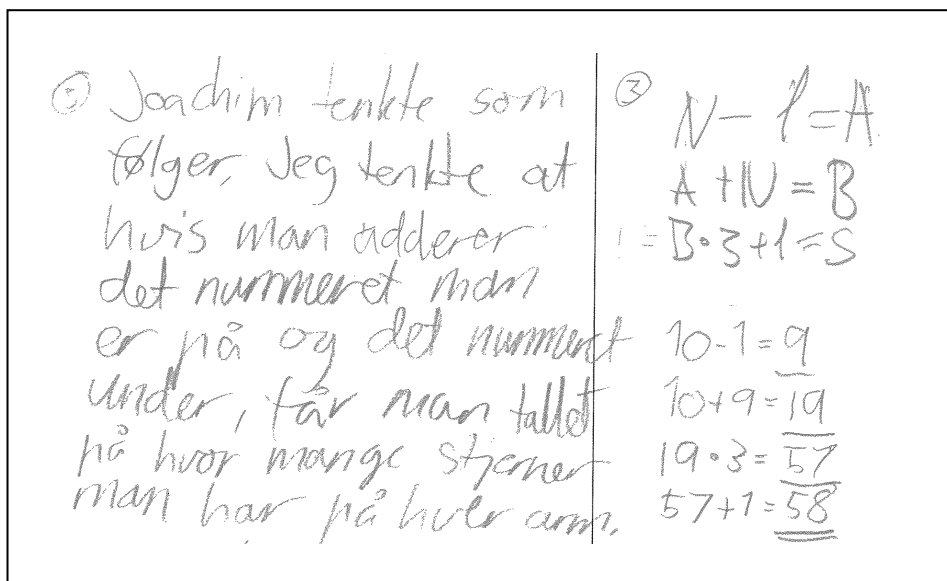 ② Joachim tenkte som
følger, Jeg tenkte at
hvis man adderer
det nummeret man
er på og det nummeret
under, får man tallet
på hvor mange stjerner
man har på hver arm.
③
N - 1 = A
A + N = B
= B · 3 + 1 = S
10 - 1 = 9
10 + 9 = 19
19 · 3 = 57
57 + 1 = 58